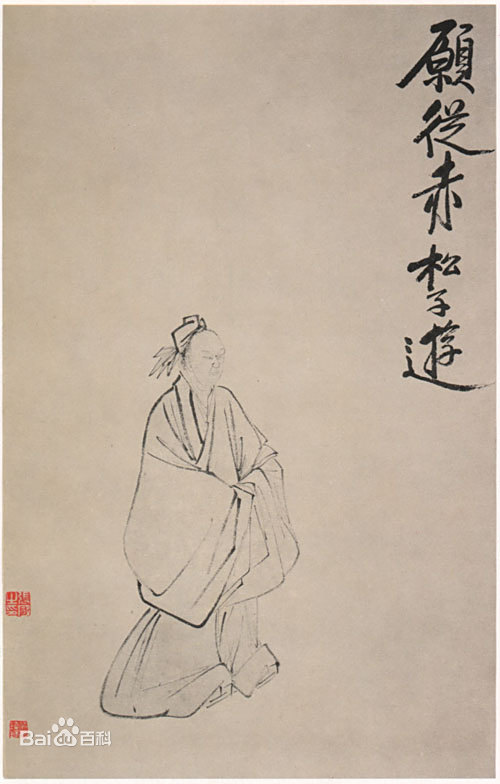 願從赤松子遊
Bai百科